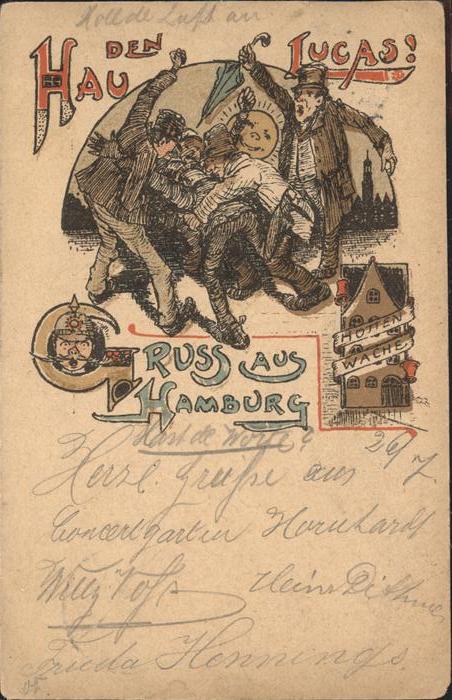 Holl de Luft an
HAU DEN LUCAS!
HÜTTEN
WACHE
GRUSS AUS
HAMBURG
Hast de Worte?
26/7.
Herzl. Grüße aus
Concertgarten Hornhardt
Willy Voß
Heinr Dittmer
Frieda Hennings.